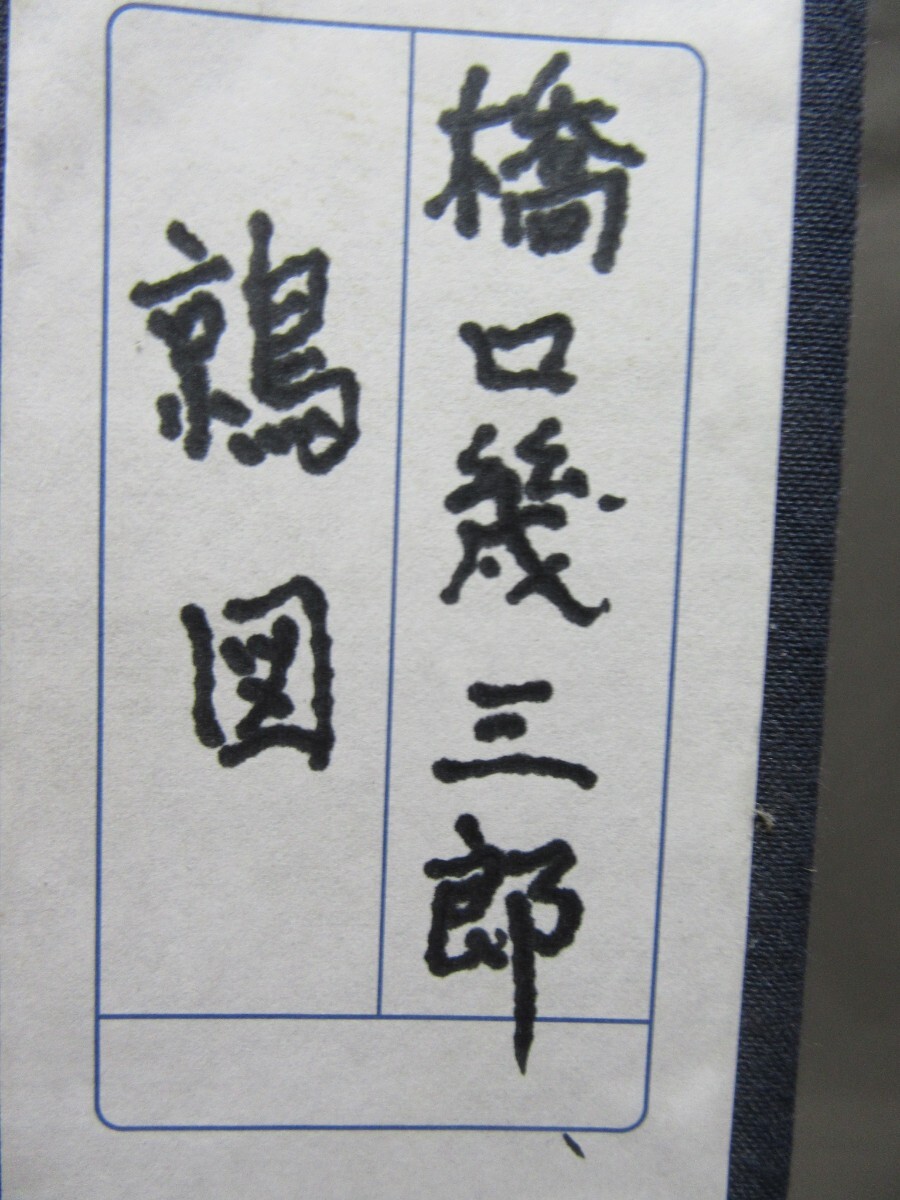 橋口幾三郎
鶉図